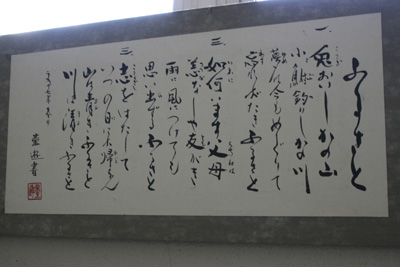 ふるさと
一、兎おいしかの山
小鮒釣りしかの川
夢は今もめぐりて
忘れがたきふるさと
二、如何にいます父母
恙なしや友がき
雨に風につけても
思い出ずるふるさと
三、志をはたして
いつの日にか帰らん
山は青きふるさと
川は清きふるさと
書